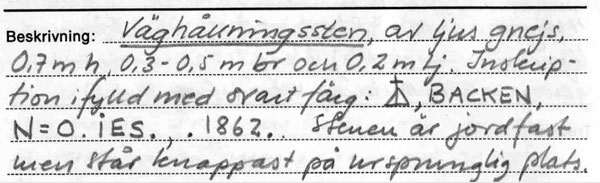 Beskrivning: Väghållningssten, av ljus gnejs,
0,7 m h, 0,3-0,5 m br och 0,2 m tj. Inskrip-
tion ifylld med svart färg: , BACKEN,
N=O. iES., . 1862. Stenen är jordfast
men står knappast på ursprunglig plats.